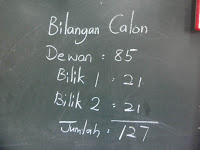 Bilangan Calon
Dewan : 85
Bilik 1 : 21
Bilik 2 : 21
Jumlah : 127